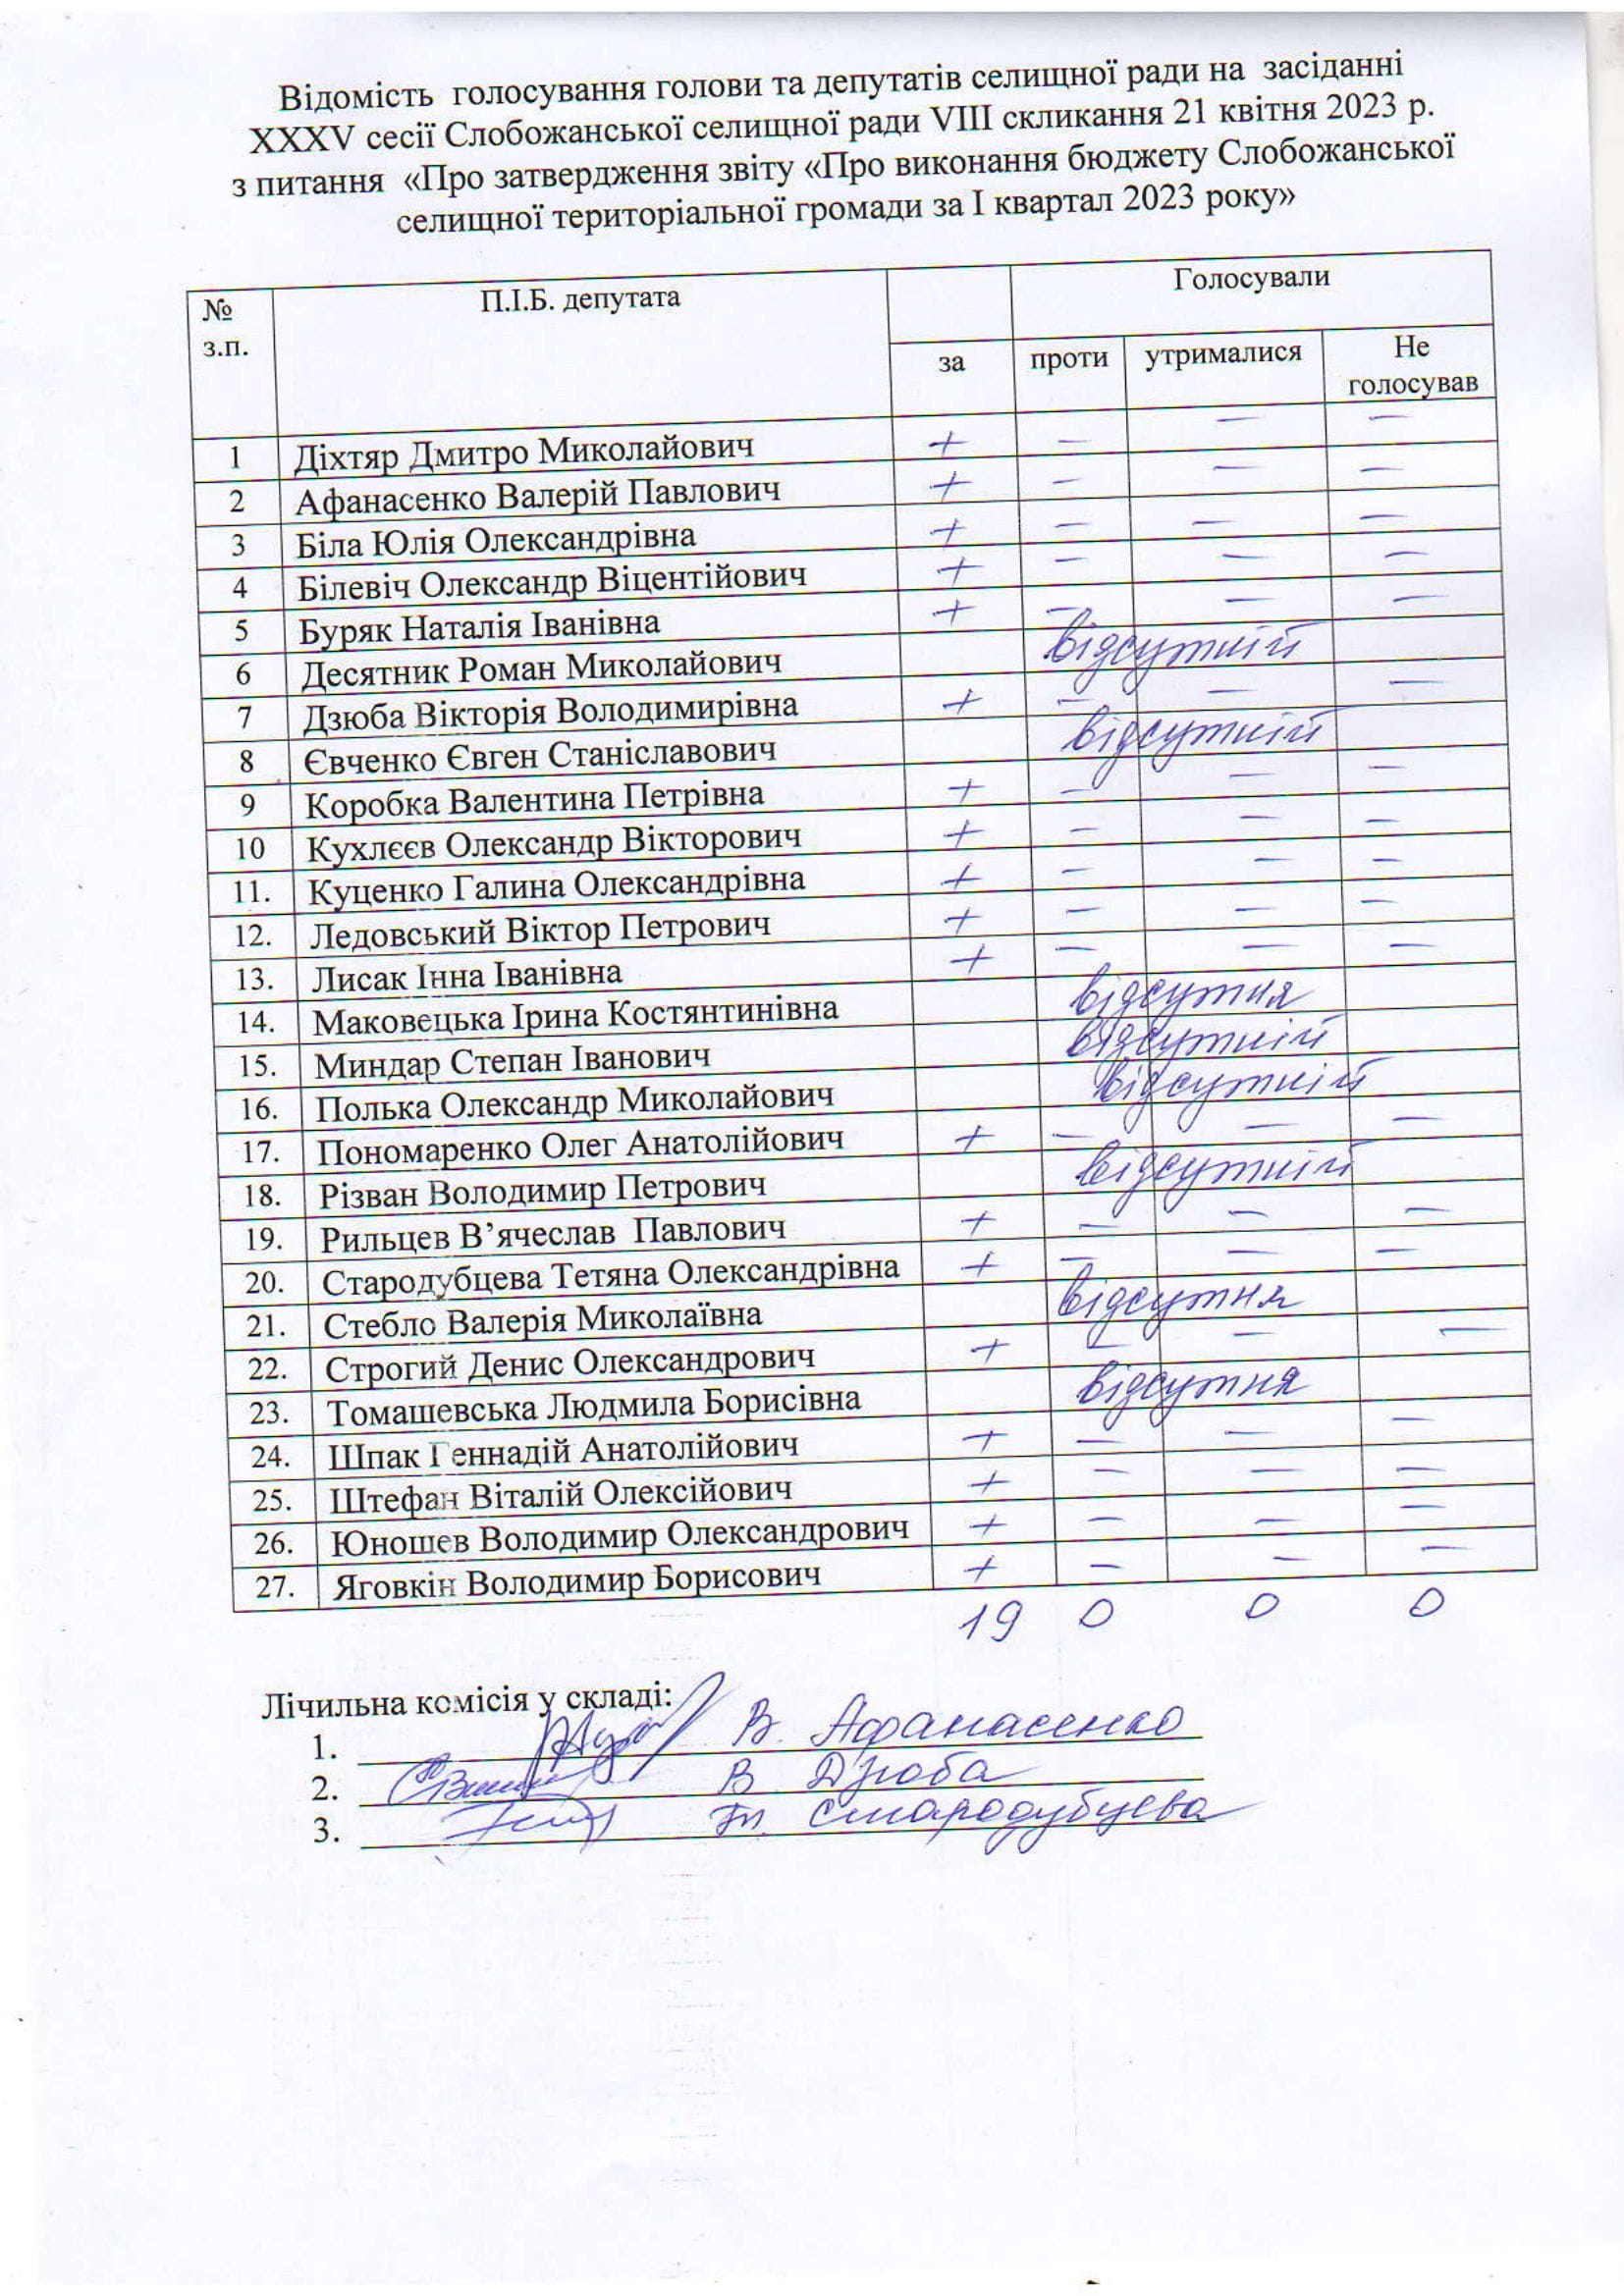 Відомість голосування голови та депутатів селищної ради на засіданні
XXXV сесії Слобожанської селищної ради VIII скликання 21 квітня 2023 р.
з питання «Про затвердження звіту «Про виконання бюджету Слобожанської
селищної територіальної громади за І квартал 2023 року»
№ П.І.Б. депутата Голосували
з.п. за проти утрималися Не
голосував
1 Діхтяр Дмитро Миколайович + – – –
2 Афанасенко Валерій Павлович + – – –
3 Біла Юлія Олександрівна + – – –
4 Білевіч Олександр Віцентійович + – – –
5 Буряк Наталія Іванівна + – – –
6 Десятник Роман Миколайович відсутній
7 Дзюба Вікторія Володимирівна + – – –
8 Євченко Євген Станіславович відсутній
9 Коробка Валентина Петрівна + – – –
10 Кухлєєв Олександр Вікторович + – – –
11. Куценко Галина Олександрівна + – – –
12. Ледовський Віктор Петрович + – – –
13. Лисак Інна Іванівна + – – –
14. Маковецька Ірина Костянтинівна відсутня
15. Миндар Степан Іванович відсутній
16. Полька Олександр Миколайович відсутній
17. Пономаренко Олег Анатолійович + – – –
18. Різван Володимир Петрович відсутній
19. Рильцев В’ячеслав Павлович + – – –
20. Стародубцева Тетяна Олександрівна + – – –
21. Стебло Валерія Миколаївна відсутня
22. Строгий Денис Олександрович + – – –
23. Томашевська Людмила Борисівна відсутня
24. Шпак Геннадій Анатолійович + – – –
25. Штефан Віталій Олексійович + – – –
26. Юношев Володимир Олександрович + – – –
27. Яговкін Володимир Борисович + – – –
19 0 0 0
Лічильна комісія у складі:
1. В. Афанасенко
2. В Дзюба
3. Т. Стародубцева